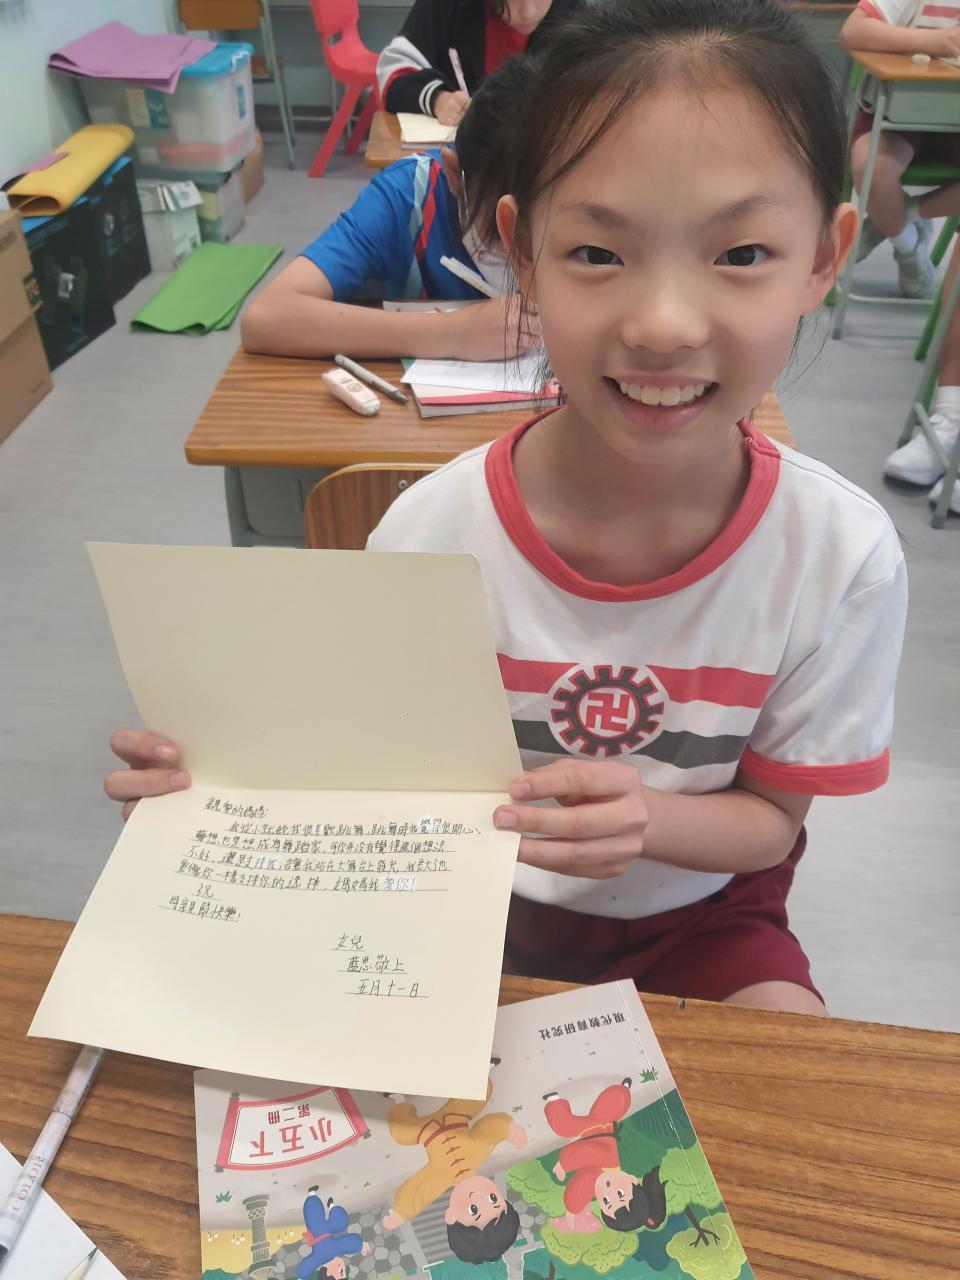 親愛的媽媽:
我從小就說我很喜歡跳舞,跳舞時我覺得很開心,
夢想也是想成為舞蹈家,可你并沒有覺得這個想法
不好,還是支持我,讓我站在大舞台上發光,我長大也
要像你一樣支持你的選擇,媽媽我愛你!
祝
母親節快樂!
女兒
藍思敬上
五月十一日
現代教育研究社
小五下
第二冊
COLOR